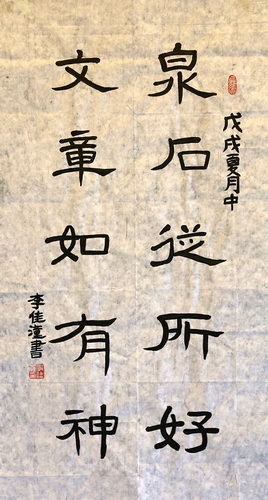 戊戌夏月中
泉石從所好
文章如有神
李佳漳書